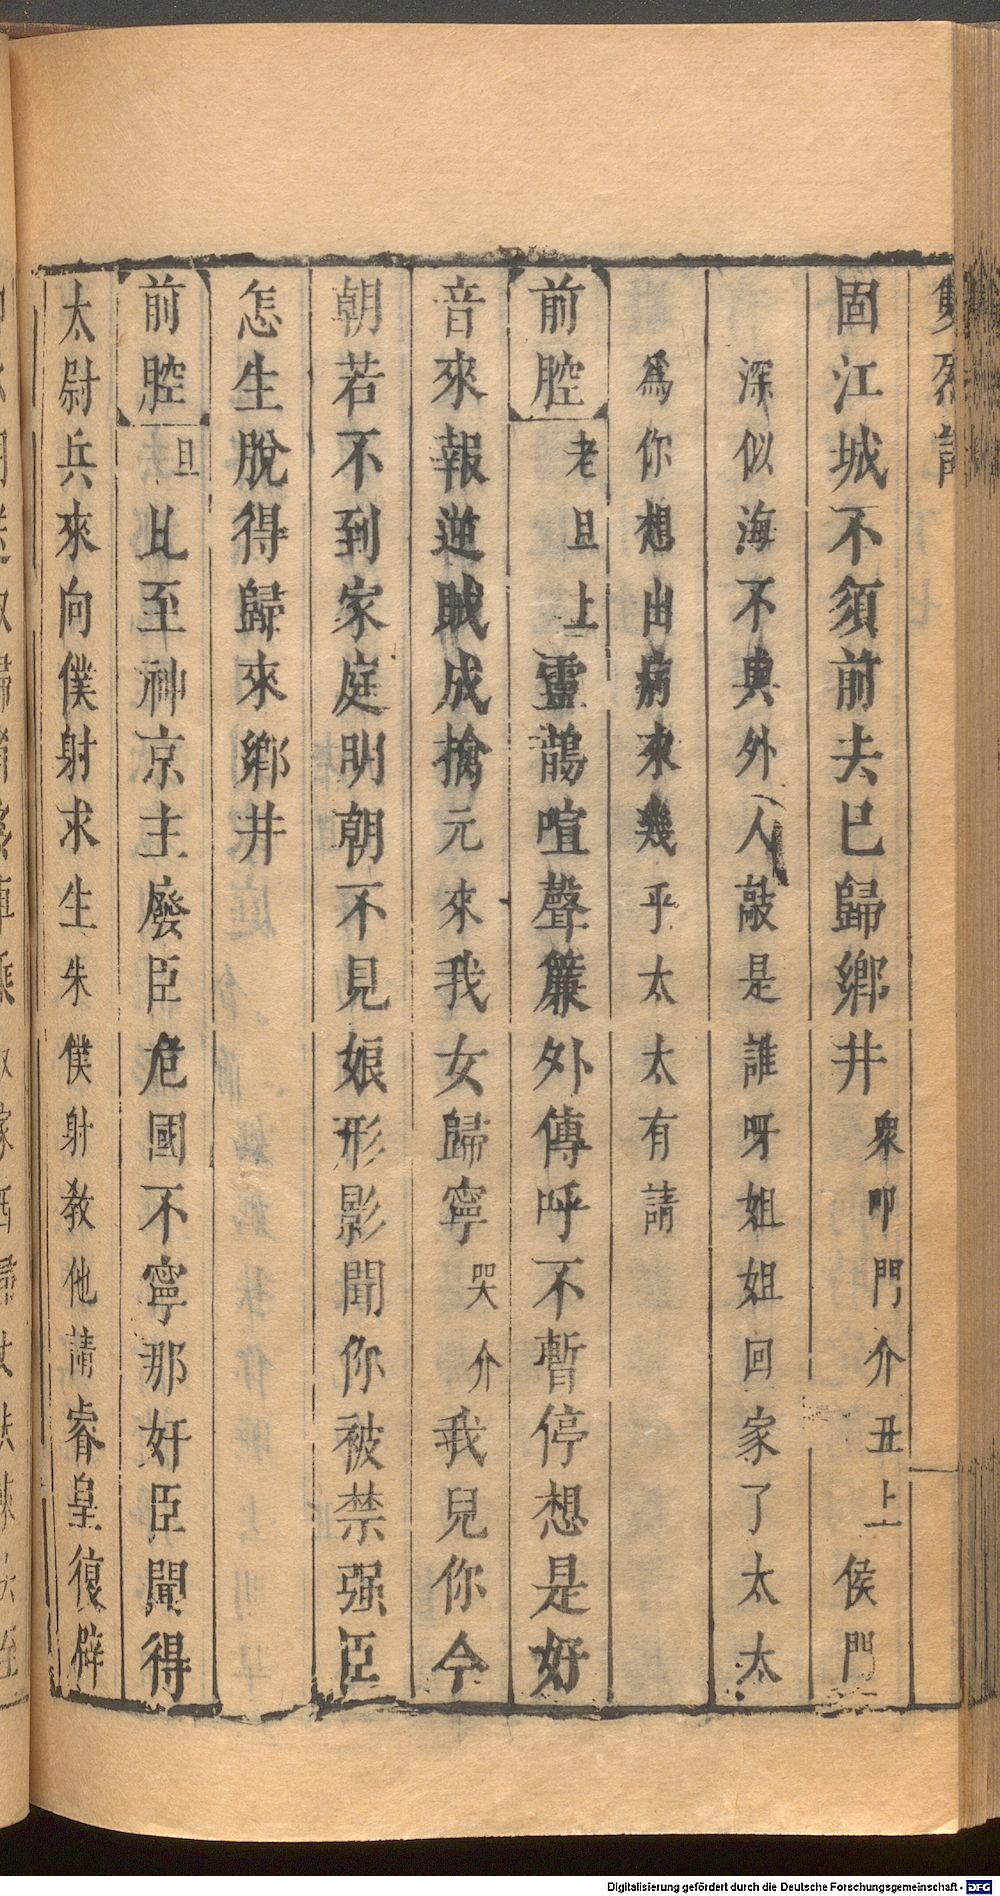 雙烈記
固江城不須前去已歸鄉井衆叩門介丑上侯門
深似海不與外人敲是誰呀姐姐回家了太太
爲你想出病來幾乎太太有請
前腔老旦上靈鵲喧聲簾外傳呼不暫停想是好
音來報逆賊成擒元來我女歸寧哭介我兒你今
朝若不到家庭明朝不見娘形影聞你被禁强臣
怎生脫得歸來鄉井
前腔旦乩至神京主廢臣危國不寧那奸臣聞得
太尉兵來向僕射求生朱僕射敎他請睿皇復辟
Digitalisierung gefördert durch die Deutsche Forschungsgemeinschaft - DFG